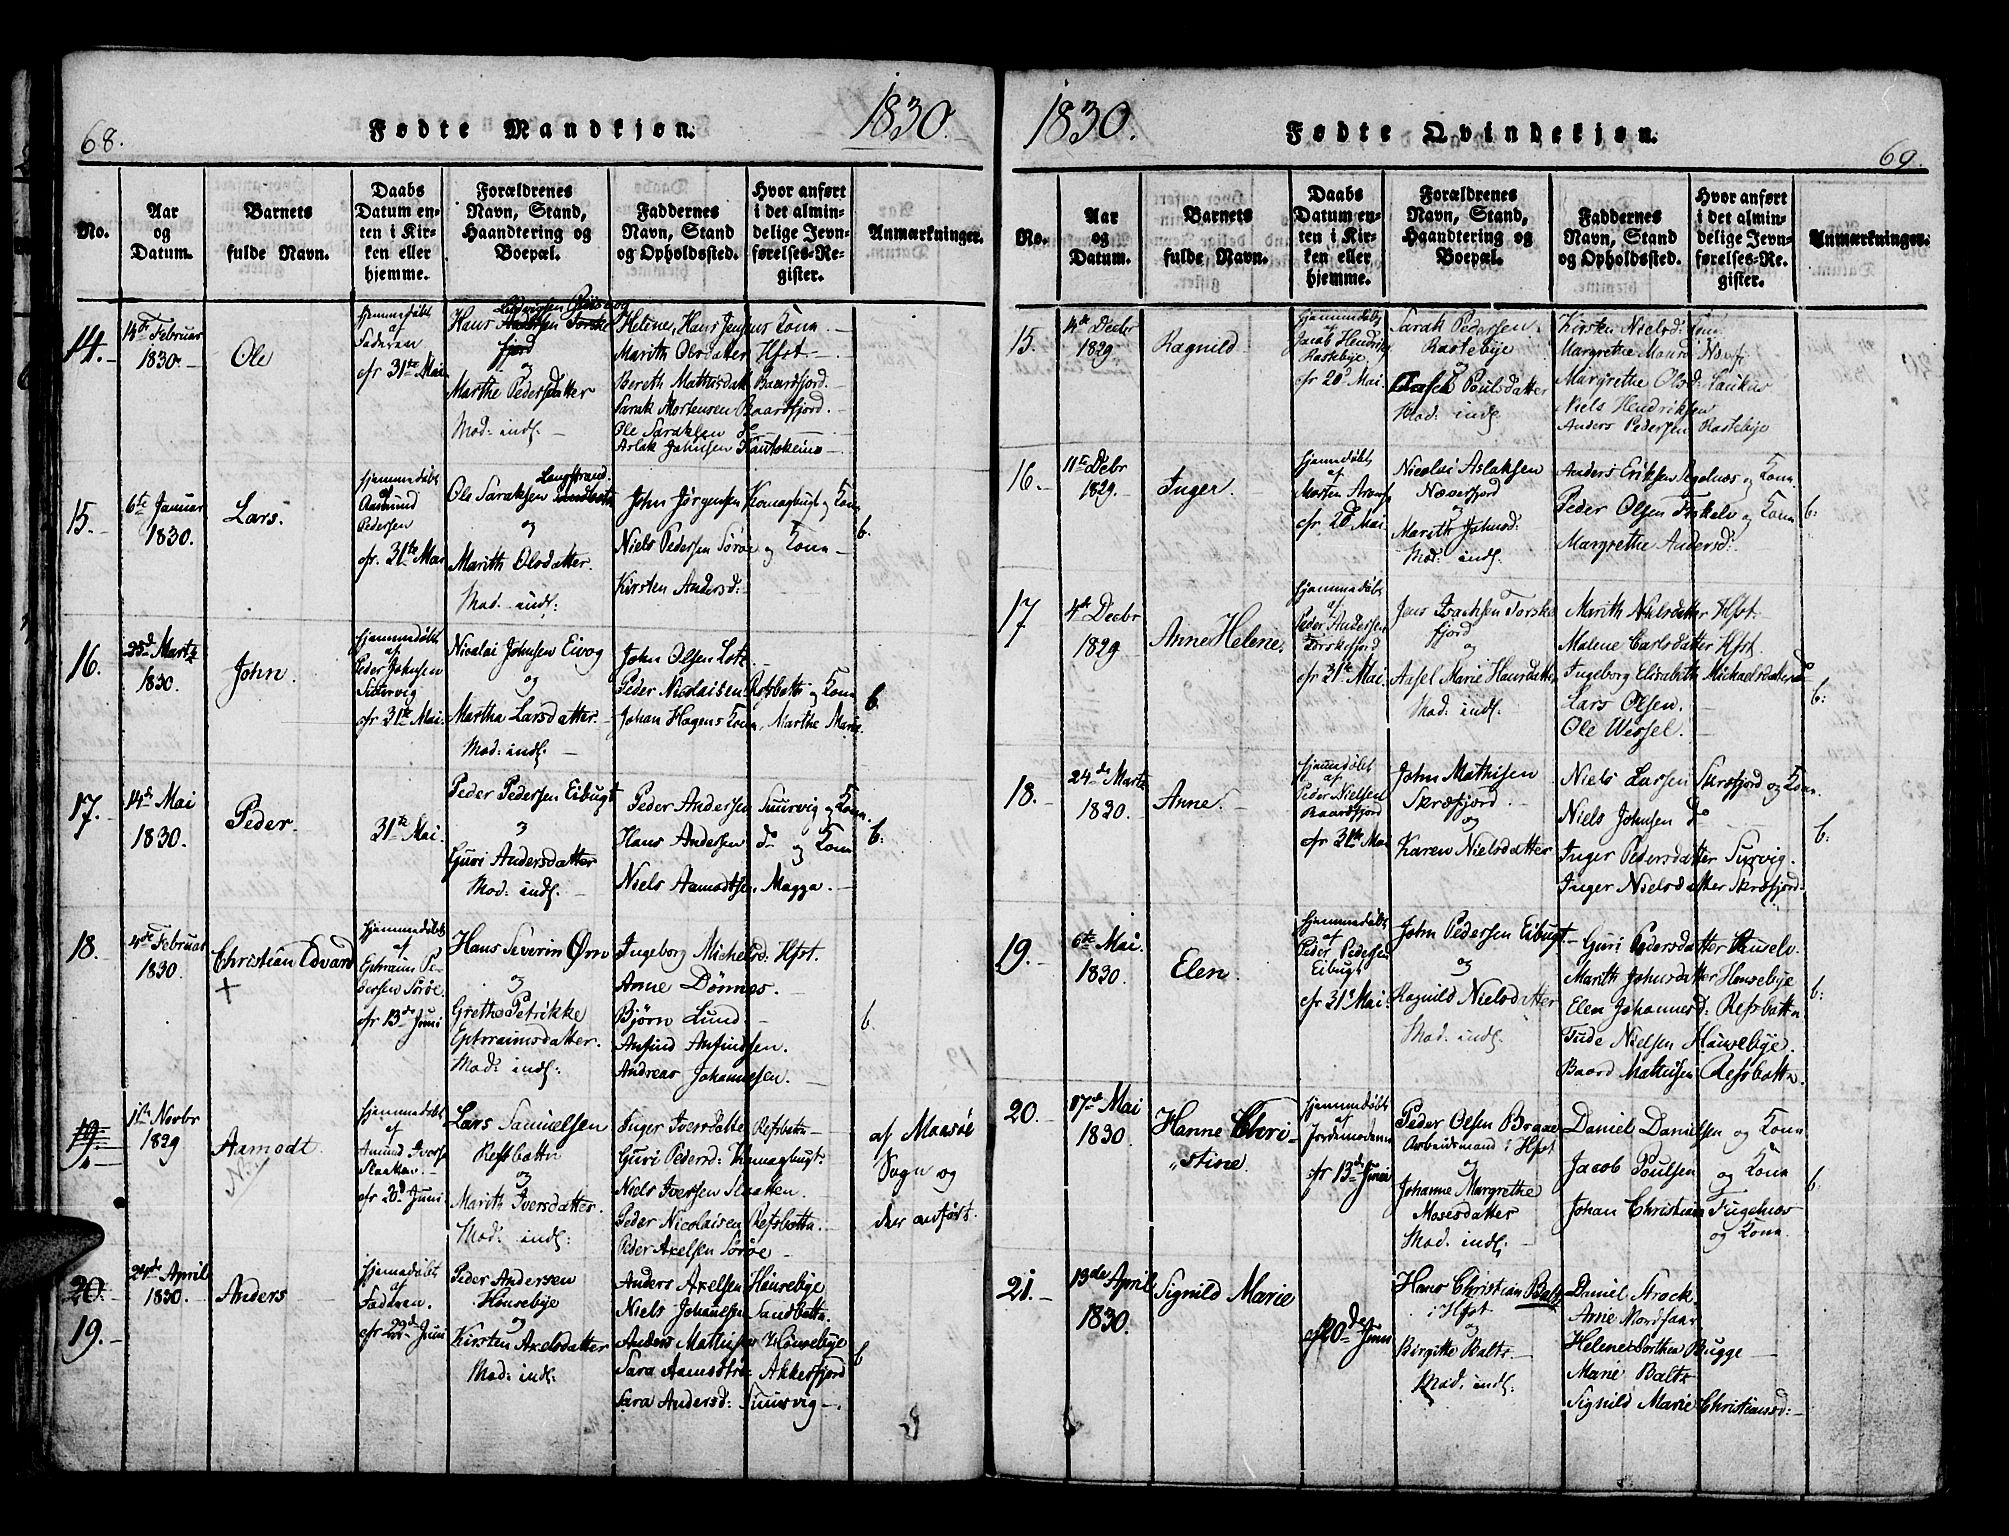 68.
Fødte Mandkjøn.
1830.
No.
Aar og Datum.
Barnets fulde Navn.
Daabs Datum enten i Kirken eller hjemme.
Forældrenes Navn, Stand, Haandtering og Boepæl.
Faddernes Navn, Stand og Opholdssted.
Hvor anført i det almindelige Jevnførelses-Register.
Anmærkninger.
14.
Februar
1830.
Ole
hjemmedøbt
af
Faderen
cfr 31te Mai
Hans
og
Marthe Pedersdatter
Mad: indf.
Helene, Hans Jensens Kone
Marith Olsdatter Hfst
Bereth Mathisdatt Baardfjord.
Sarak Mortensen Baardfjord.
Ole Saraksen do
Aslak Johnsen Kautokeino
15.
6te Januar
1830.
Lars.
hjemmedøbt
af
Aasmund
Pedersen
cfr. 31te Mai
Langstrand
Ole Saraksen
og
Marith Olsdatter.
Mad. indf:
John Jørgensen Komagbugt og Kone
Niels Pedersen Sørøe og Kone
Kirsten Andersd:
b.
16.
25de Martz
1830.
John.
hjemmedøbt
af
Peder Johnsen
cfr 31te Mai
Nicolai Johnsen Eivog
og
Martha Larsdatter.
Mad: indf.
John Olsen Lotz
Peder Nicolaisen Refsbatn og Kone
Johan Hagens Kone, Marthe Marie
b.
17.
14de Mai
1830.
Peder.
31te Mai
Peder Pedersen Eibugt
og
Guri Andersdatter
Mad: indf.
Peder Andersen Suurvig og Kone.
Hans Andersen do og Kone
Niels Aamodtsen Magga.
b:
18.
4de Februar
1830.
Christian Edvard
+
hjemmedøbt
af
Ephraim Pedersen Sørøe.
cfr 13de Juni
Hans Severin Ørn
og
Grethe Petrikke
Ephraimsdatter.
Mad: indf:
Ingeborg Michelsd: Hfst.
Anne Dønnes.
Bjørn Lund.
Anfind Anfindsen.
Andreas Johannesen.
b.
19.
Novbr
1829
Aamodt.
hjemmedøbt
af
Amund Ivers
Slaatten
cfr 20d Juni
Lars Samuelsen
Refsbotn
og
Marith Iversdatter.
Mad: indf:
Inger Iversdatte Refsbotn
Guri Pedersd: Komagbugt:
Niels Iversen Slaatten.
Peder Nicolaisen Refsbotn.
Peder Axelsen Sørøe
af Maasøe
Sogn og
der anført.
20.
19.
24de April
1830.
Anders
hjemmedøbt
af
Faderen.
cfr 22de Juni
Peder Andersen
Hønsebye
og
Kirsten Axelsdatter
Mad: indf:
Anders Axelsen Hønsebye
Niels Johansen Sandbotn.
Anders Mathisen Hønsebye
Sara Aamodtsd: Akkerfjord
Sara Andersd: Suurvig
b
1830.
Fødte Qvindekjøn.
69.
No.
Aar og Datum.
Barnets fulde Navn.
Daabs Datum enten i Kirken eller hjemme.
Forældrenes Navn, Stand, Haandtering og Boepæl.
Faddernes Navn, Stand og Opholdssted.
Hvor anført i det almindelige Jevnførelses-Register.
Anmærkninger.
15.
4de Decbr
1829.
Ragnild
hjemmedøbt
af
Jacob Hendriks
Rastebye
cfr 20d Mai.
Sarak Pedersen
Rastebye
og
Poulsdatter
Mad: indf
Kirsten Nielsd:
Margrethe
Margrethe Olsd:
Niels Hendriksen
Anders Pedersen Rastebye
16.
11te Debr
1829.
Inger.
hjemmdøbt
af
Morten
cfr. 20d Mai.
Nicolai Aslaksen
Næverfjord
og
Marith Johnsd:
Mad: indf.
Anders Eriksen Segelnæs og Kone
Peder Olsen og Kone
Margrethe Andersd:
b:
17
4de Decbr
1829
Anne Helene.
hjemmedøbt
af
Peder Andersen
Torskefjord
cfr 21de Mai.
Jens Isachsen Torske
fjord
og
Aasel Marie Hansdatter
Mad: indf.
Marith Nielsdatter Hfst:
Malene Carlsdatter Hfst.
Ingeborg Elisabeth Michaelsdatter do
Lars Olsen.
Ole Wessel.
b:
18.
24de Marts
1830.
Anne.
hjemmdøbt
af
Peder Nielsen
Baardfjord
cfr 31te Mai
John Mathisen
Skræfjord.
og
Karen Nielsdatter
Niels Larsen Skræfjord og Kone.
Niels Johnsen do
Inger Pedersdatter Survig.
Inger Nielsdatter Skræfjord.
b:
19.
6te Mai.
1830.
Elen.
hjemmedøbt
af
Peder Pedersen
Eibugt
cfr 31te Mai.
John Pedersen Eibugt
og
Ragnild Nielsdatter
Mad: indf.
Guri Pedersdatter
Marith Johnsdatter Hønsebye
Elen Johannesd: Refsbotn
Tude Nielsen Hønsebye.
Baard Mathisen Refsbotn.
b:
20.
17de Mai
1830.
Hanne Chri-
stine.
hjemmedøbt
af
Jordemoderen
cfr 13de Junii
Peder Olsen Braae
Arbeidsmand i Hfst
og
Johanne Margrethe
Mosesdatter
Mad: indf.
Daniel Danielsen og Kone
Jacob Poulsen og Kone
Johan Christian Fugelnæs
og Kone.
b.
21.
13de April
1830.
Signild Marie
20de Juni
Hans Christian Balts
i Hfst
og
Birgitte Balts.
Mad. indf:
Daniel Strock.
Arne Nordfaar
Helene Dorthea Bugge
Marie Balts
Signild Marie Christiansd: